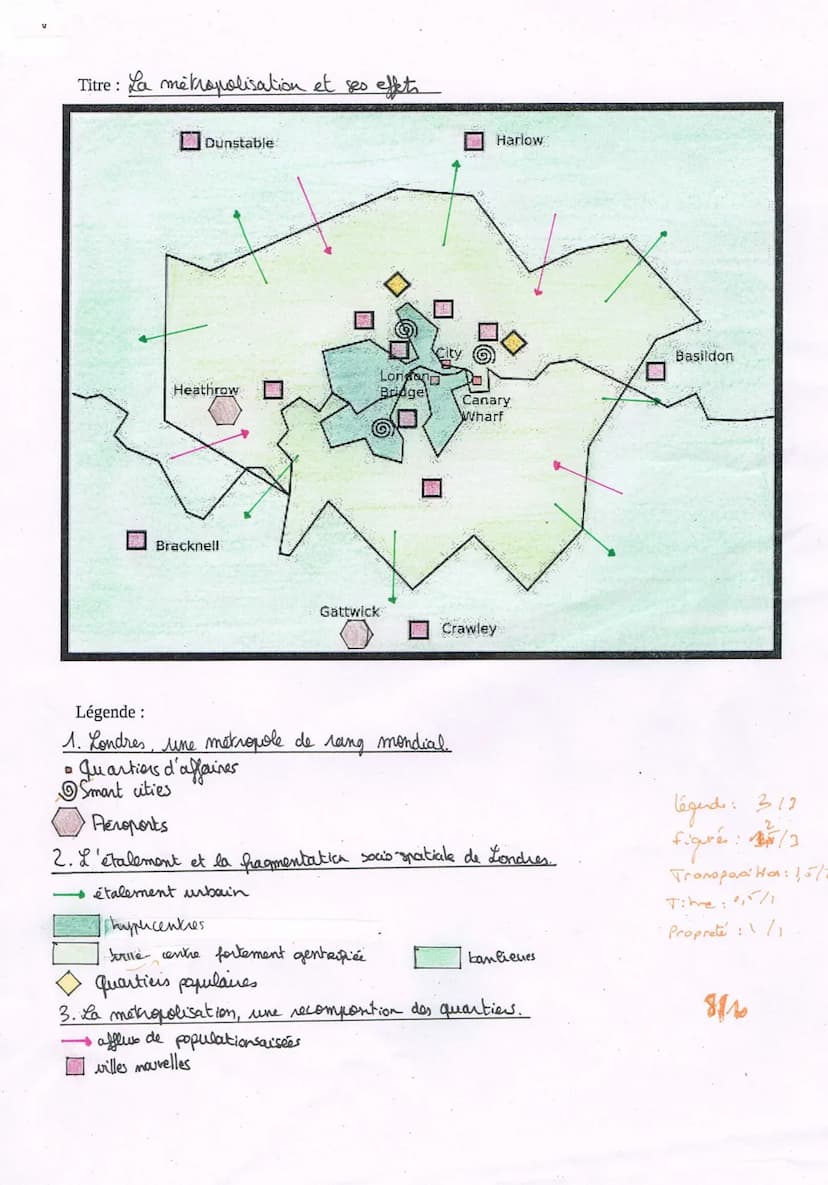 Titre : La métropolisation et ses effets
Dunstable
Harlow
City
Basildon
London
Bridget
Heathrow
Canary
Wharf
Bracknell
Gattwick
Crawley
Légende :
1. Londres, une métropole de rang mondial.
Quartiers d'affaires
Smart cities
Aéroports
2. L'étalement et la fragmentation socio-spatiale de Londres.
étalement urbain
hypercentres
ville-centre fortement gentrifiée
banlieues
Quartiers populaires
3. La métropolisation, une recomposition des quartiers.
afflux de populations aisées
villes nouvelles
Légende : 3/3
figurés : 2/3
Transposition : 1,5/2
Titre : 0,5/1
Propreté : 1/1
8/10